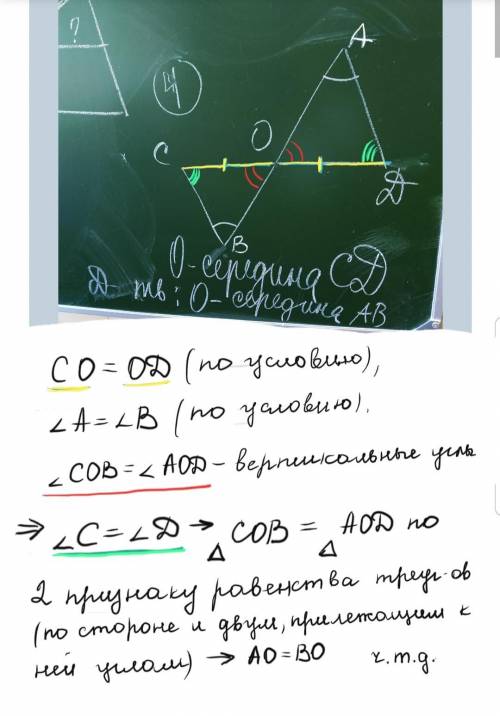 ?
4
A
O
C
D
B
О-середина СД
Д-ть: О-середина АВ
СО = ОД (по условию),
∠A = ∠B (по условию).
∠COB = ∠AOD - вертикальные углы
⇒ ∠C = ∠D → △COB = △AOD по
2 признаку равенства треуг-ов
(по стороне и двум, прилежащим к
ней углам) → AO = BO ч.т.д.